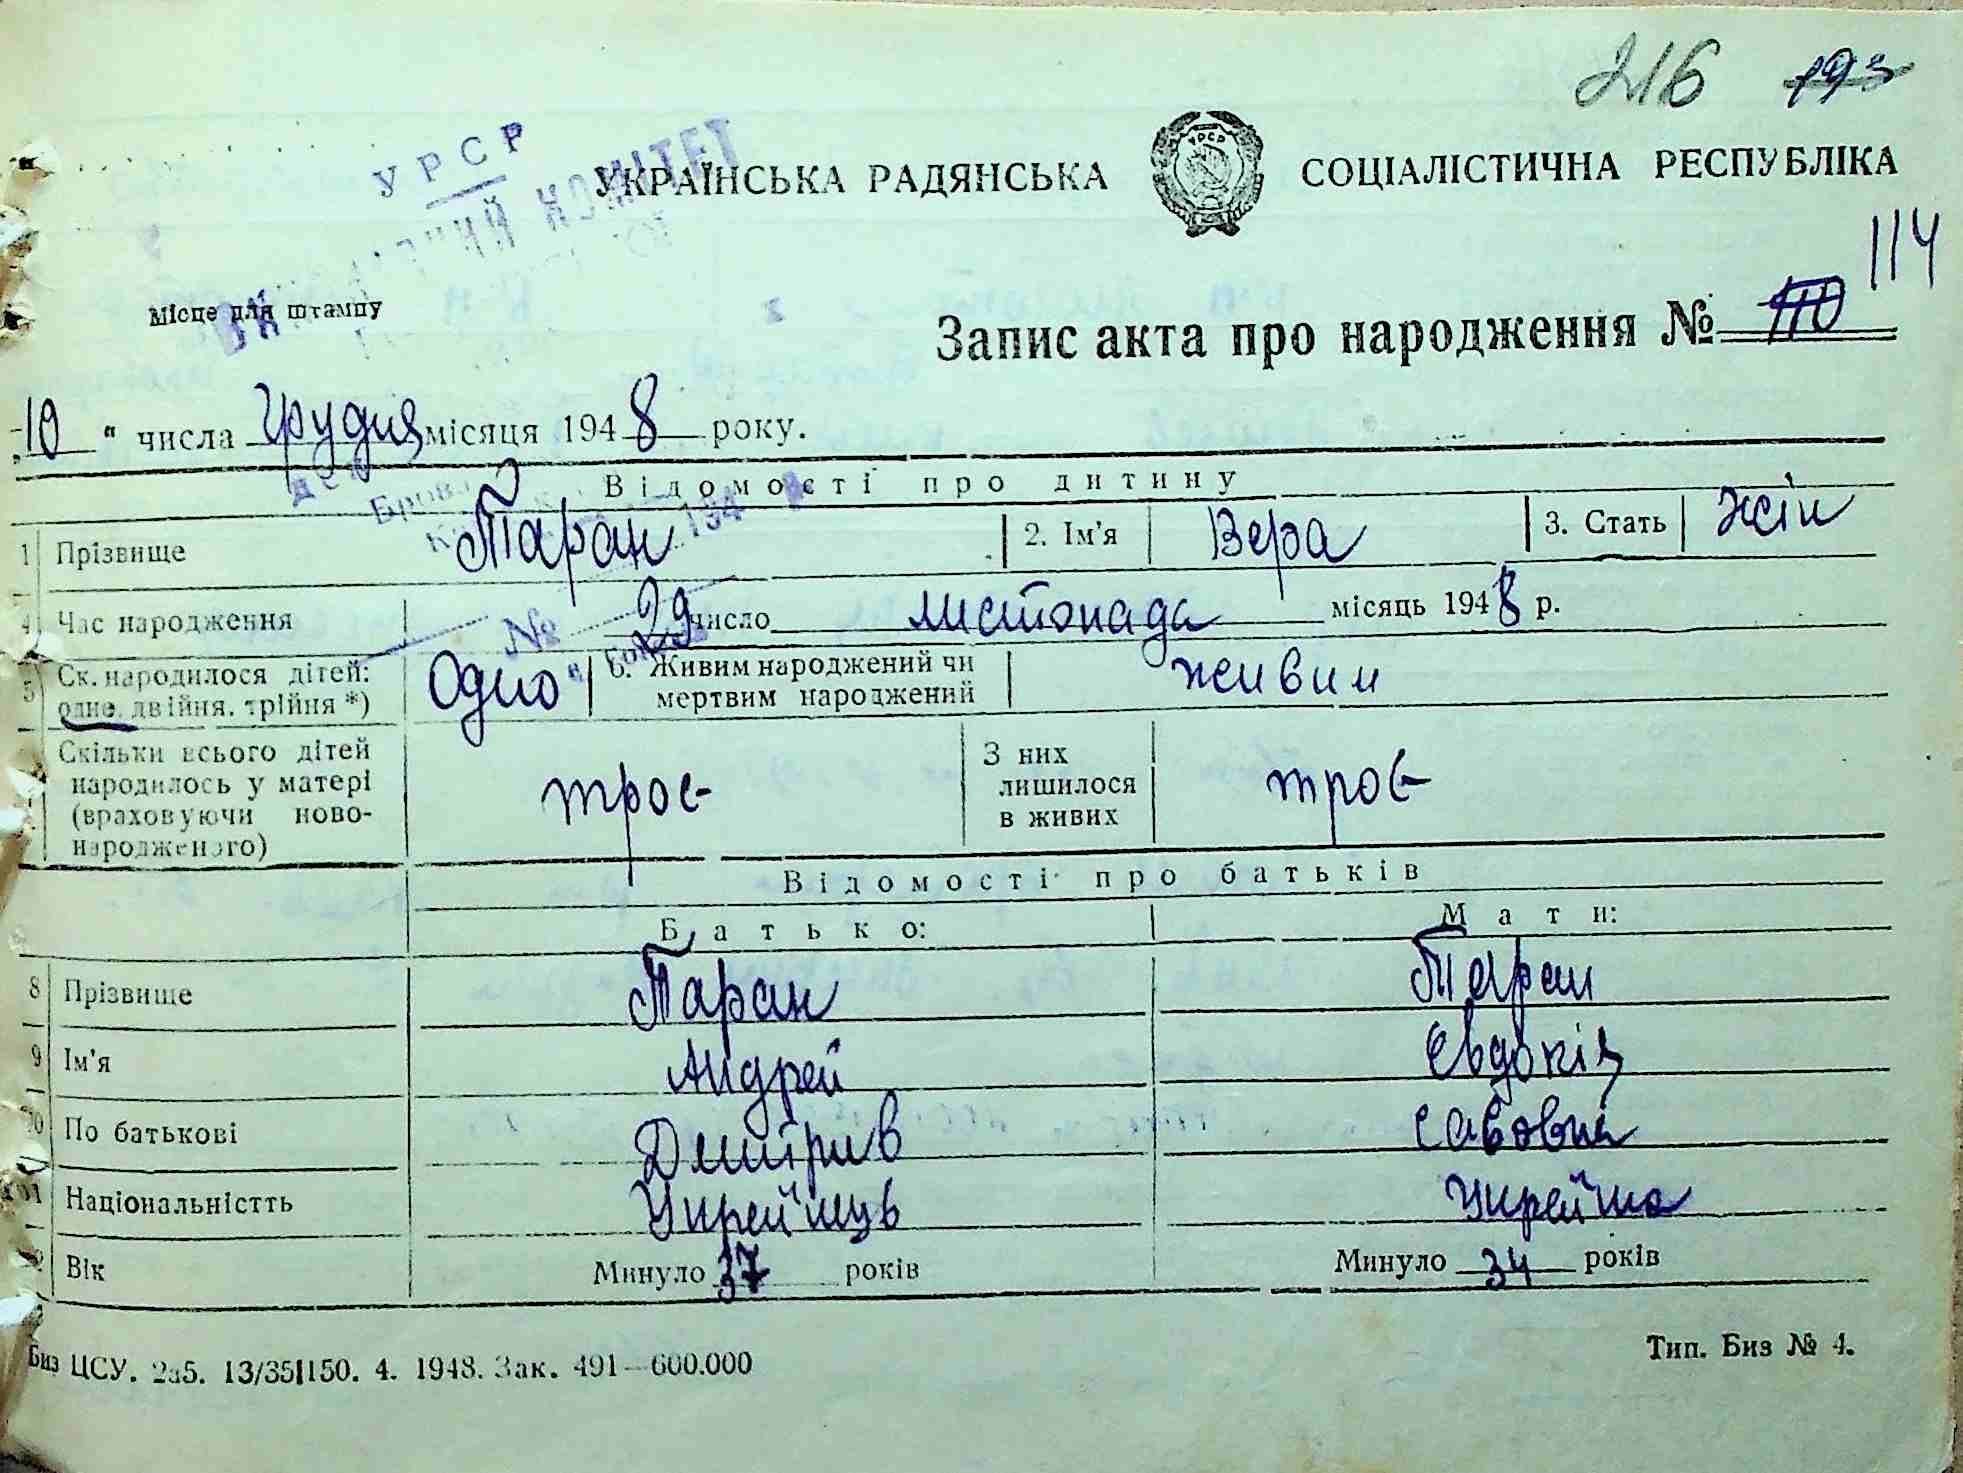 216 193
УРСР
ВИКОНАВЧИЙ КОМІТЕТ
УКРАЇНСЬКА РАДЯНСЬКА СОЦІАЛІСТИЧНА РЕСПУБЛІКА
УРСР
114
Місце для штампу
Запис акта про народження № 110
„10“ числа Грудня місяця 1948 року.
Відомості про дитину
1 Прізвище Таран 2. Ім'я Вера 3. Стать жін
4 Час народження 29 число листопада місяць 1948 р.
№
5 Ск. народилося дітей: одне, двійня, трійня *) Одно 6. Живим народжений чи мертвим народжений живим
Скільки всього дітей народилось у матері (враховуючи новонародженого) троє З них лишилося в живих троє
Відомості про батьків
Батько: Мати:
8 Прізвище Таран Таран
9 Ім'я Андрей Євдокія
10 По батькові Дмитрив Савовна
Національністть Украйнць Украйнка
Вік Минуло 37 років Минуло 34 років
Биз ЦСУ. 2а5. 13/35І150. 4. 1948. Зак. 491—600.000 Тип. Биз № 4.